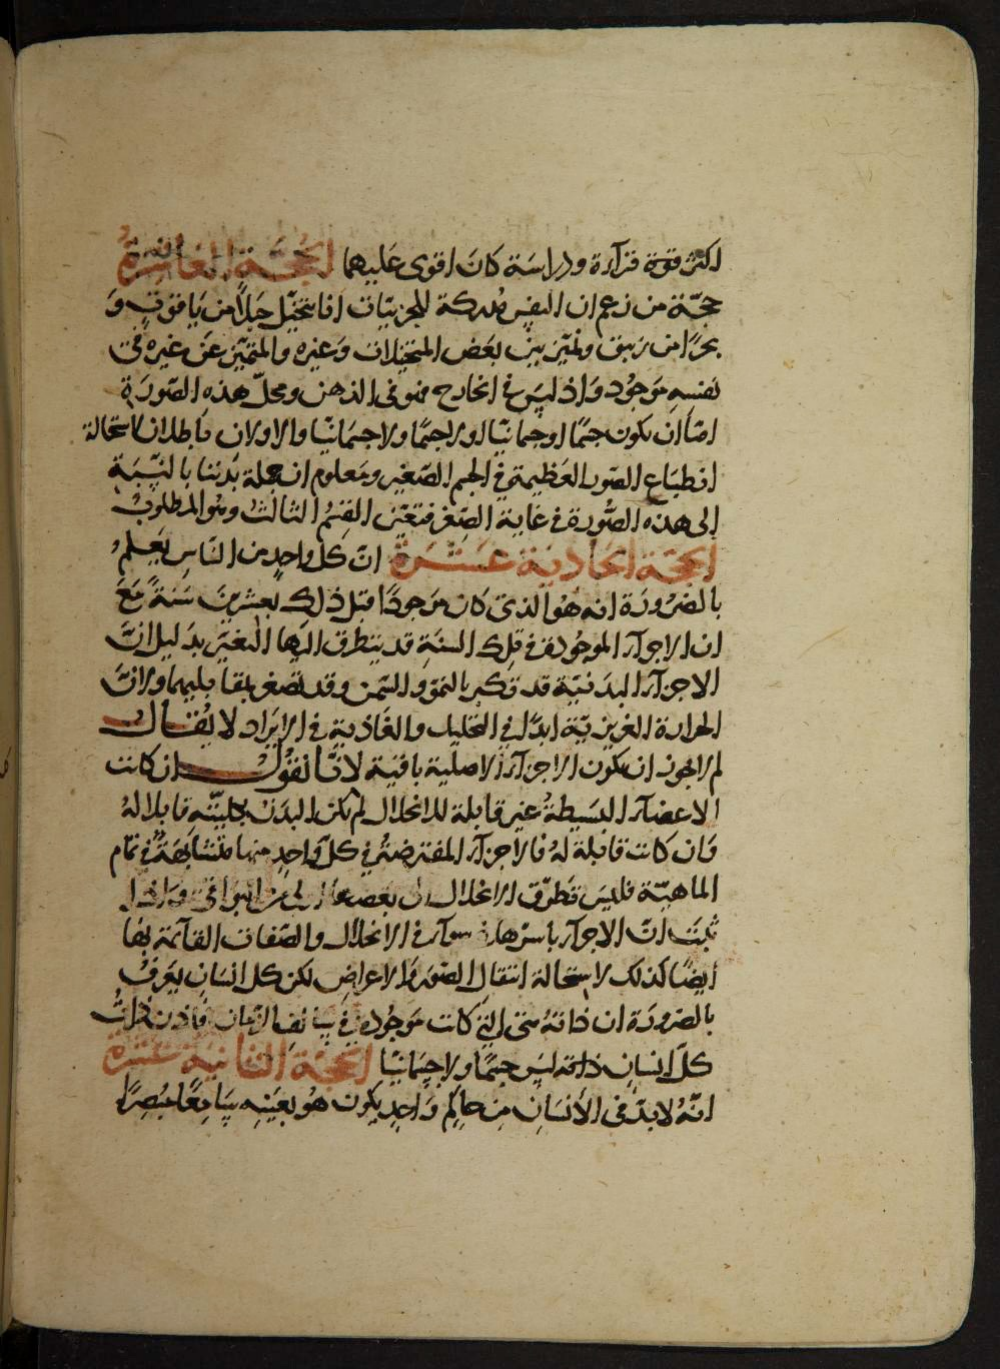 اكثر قوة قرآءة ودراسة كان اقوى عليهما الحجة العاشرة
حجّة من زعم ان النفس مُدركة للجزئيّات انا نتخيّل جبلاً من ياقوتٍ وَ
بحرًا من زيبق ونميّز بين بعض المتخيّلات وَغيره والمتميّز عَن غيره فى
نفسهِ مَوجُود وَاذ ليس فى الخارج فهو فى الذهن ومحلّ هذه الصّورَة
امّا ان يكون جسمًا او جسمانيّا او لاجسمًا ولاجسمَانيّا والاولان بَاطلان لاستحالة
انطبَاع الصّور العَظيمة فى الجسم الصّغير ومَعلوم ان جملة بَدننا بالنّسبَة
الى هذه الصُّورة فى غاية الصِّغر فتعَيّن القِسمُ الثالثُ وهُو المطلوبُ
الحجّة الحادية عَشَرة انّ كلّ واحدٍ من النّاسِ يَعلمُ
بالضَرورَة انه هُوَ الذى كان مَوجودًا قبل ذلك بعشرين سَنةً مَعَ
ان الاجزآء الموجُودة فى تلك السنَةِ قد يتطرق اليها التغيّر بدَليل انّ
الاجزآء البدَنيّة قد تكبر بالنموّ والسّمن وقد تصغر بمقابليهما ولانّ
الحرارة الغريزيّة ابدًا فى التحليل والغَاذية فى الايرَاد لا يُقال
لم لا يجوز ان يكون الاجزآء الاصلية باقية لانّا نقُول ان كانت
الاعضآء البسَيطةُ غير قابلة للانحلال لم يكن البدَن بكليّته قابلا لهُ
وَان كانت قابلة لهُ فالاجزآء المفترضةُ فى كلّ وَاحدٍ منها متشابهَةٌ فى تمَام
الماهيّة فليسَ تَطرّق الانحلال الى بعضها اولى من البواقى وَاذا
ثبَتَ انّ الاجزآء باسرهَا سوآء فى الانحلال والصّفات القآئمة بها
ايضًا كذلك لاستحالة انتقال الصّوَر وَالاعراضِ لكن كل انسَانٍ يَعرفُ
بالضرورَة ان ذاتهُ هى التى كانت مَوجُودة فى سالف الزمان فاذن ذاتُ
كلّ انسانٍ ذاته ليسَ جسمًا ولا جسمَانيّا الحجّة الثانيَة عشرَة
انّهُ لابدّ فى الانسَانِ مِن حاكِمٍ وَاحِدٍ يكون هُو بعَينِه سَامِعًا مُبصِرًا